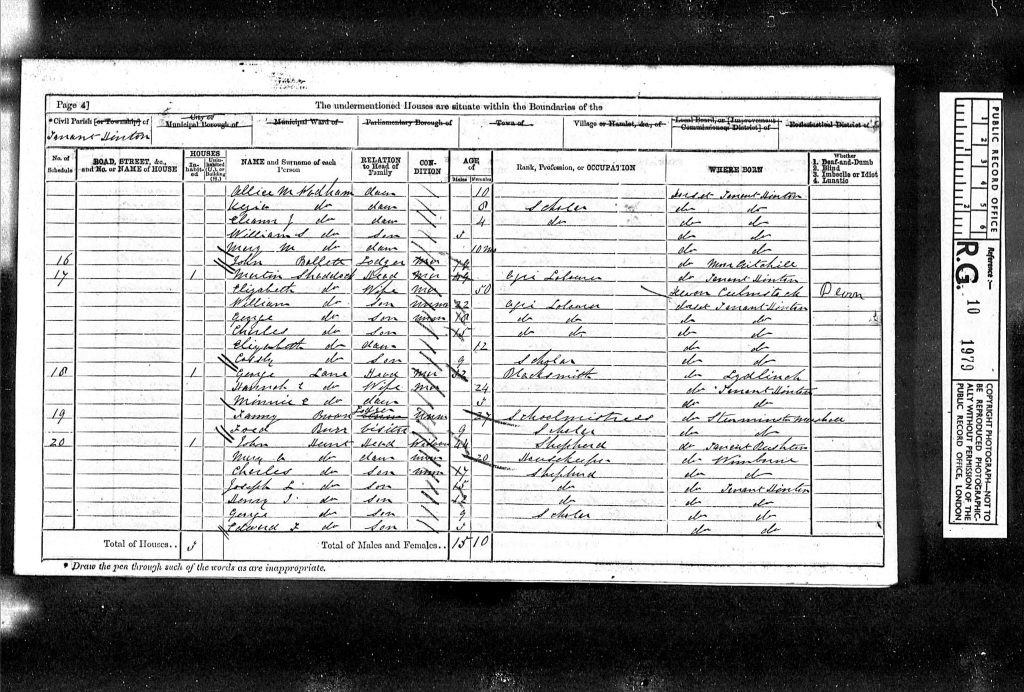 Page 4] The undermentioned Houses are situate within the Boundaries of the
* Civil Parish [or Township] of City of Municipal Borough of Municipal Ward of Parliamentary Borough of Town of Village or Hamlet, &c., of Local Board, or [Improvement Commissioners District] of Ecclesiastical District of
Tarrant Hinton
No. of Schedule ROAD, STREET, &c., and No. or NAME of HOUSE HOUSES Inhabited Uninhabited (U.), or Building (B.) NAME and Surname of each Person RELATION to Head of Family CONDITION AGE of Males Females Rank, Profession, or OCCUPATION WHERE BORN Whether 1. Deaf-and-Dumb 2. Blind 3. Imbecile or Idiot 4. Lunatic
Allice M daur 10 Dorset Tarrant Hinton
do daur 8 Scholar do do
J do daur 4 do do do
William S do Son 5 do do
Mary M do daur 10 mo do do
16 John Lodger do
17 1 Martin Shaddock Head Mar 49 Agri Labourer do Tarrant Hinton
Elizabeth do Wife Mar 50 Devon Culmstock Devon
William do Son 22 Agri Labourer Dorset Tarrant Hinton
George do Son 18 do do do do
Charles do Son 15 do do do do
Elizabeth do daur 12 do do
do Son 9 Scholar do do
18 1 George Lane Head Mar 32 Blacksmith do Lydlinch
Hannah E do Wife Mar 24 do Tarrant Hinton
Minnie E do daur 5 do do
19 Fanny Lodger 27 Schoolmistress do Sturminster Marshall
Visitor 9 Scholar do do
20 1 John Hunt Head 44 Shepherd do Tarrant Rushton
Mary do daur 20 Housekeeper do Wimborne
Charles do Son 17 Shepherd do do
Joseph L do Son 15 do do Tarrant Hinton
Henry J do Son 12 do do do
George do Son 9 Scholar do do
Edward F do Son 5 do do
Total of Houses.. 3 Total of Males and Females.. 15 10
* Draw the pen through such of the words as are inappropriate.
PUBLIC RECORD OFFICE
1 2 3 4 5 6
1 2
Reference :-
R.G. 10 1979
COPYRIGHT PHOTOGRAPH—NOT TO
BE REPRODUCED PHOTOGRAPHIC-
ALLY WITHOUT PERMISSION OF THE
PUBLIC RECORD OFFICE, LONDON